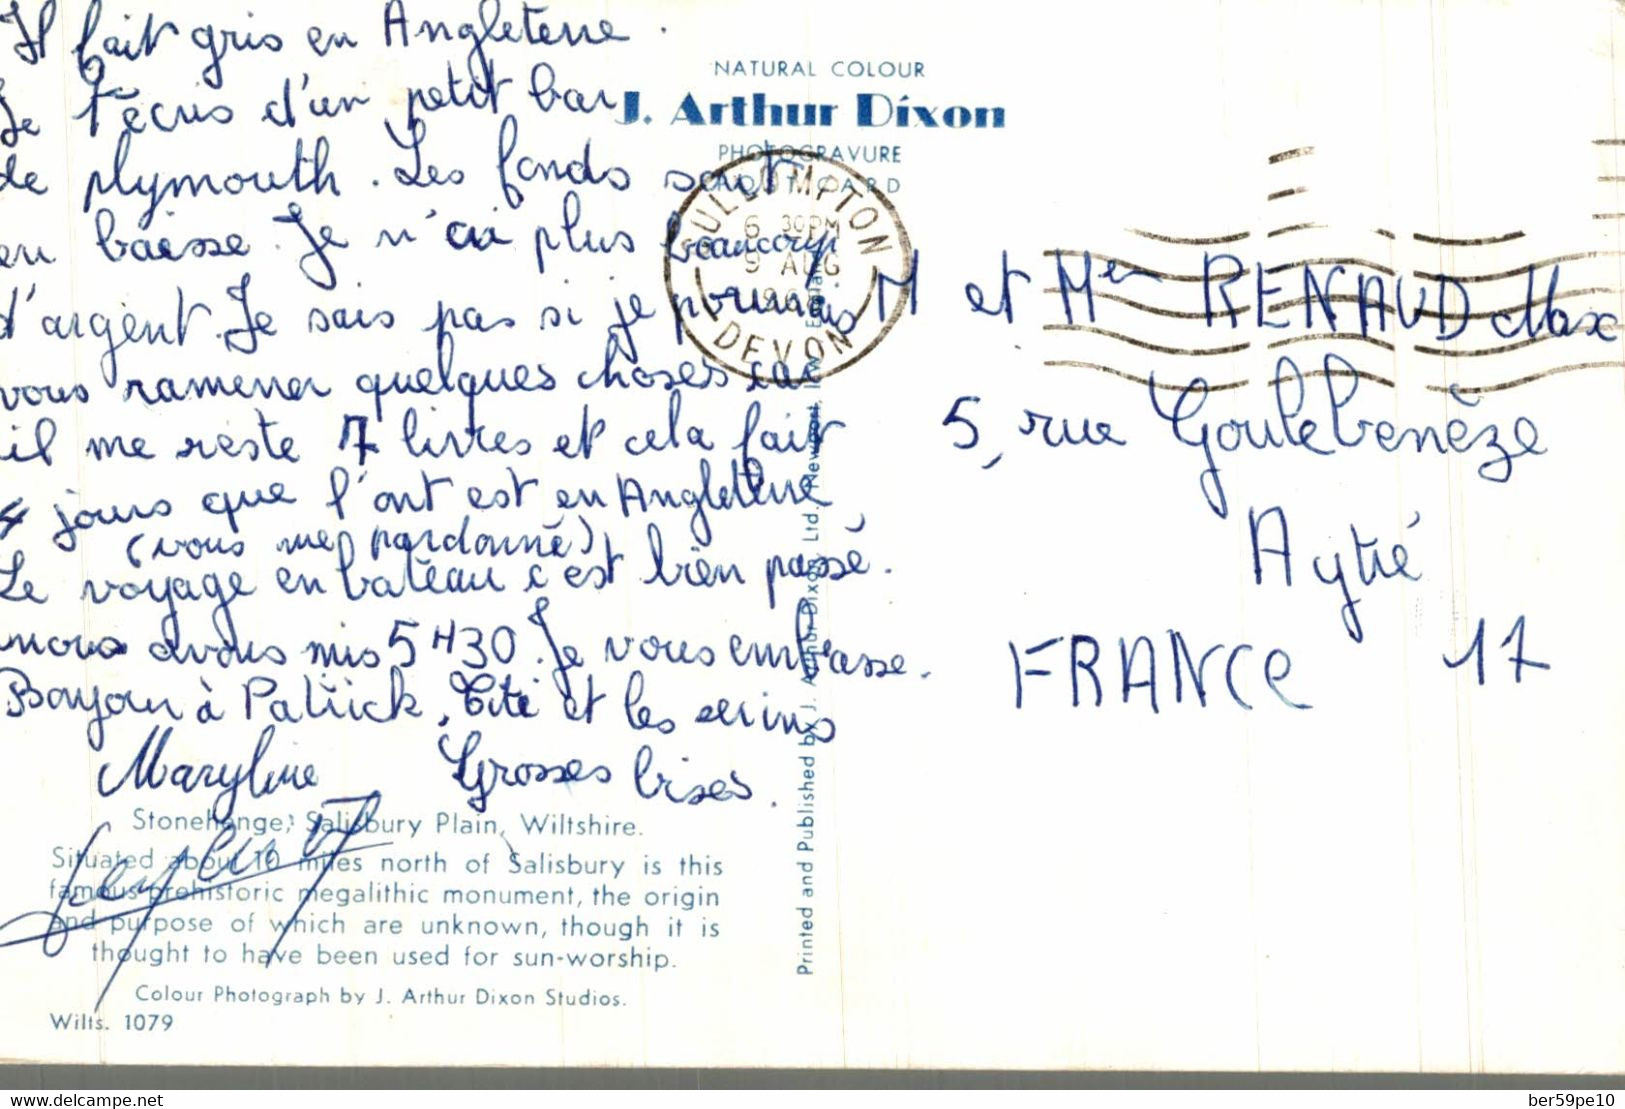 Il fait gris en Angleterre.
Je t'écris d'un petit bar
de plymouth. Les fonds sont
en baisse. Je n'ai plus beaucoup
d'argent. Je sais pas si je pourrais
vous ramener quelques choses car
il me reste 7 livres et cela fait
4 jours que l'ont est en Angleterre
(vous me pardonné)
Le voyage en bateau c'est bien passé.
nous avons mis 5H30. Je vous embrasse.
Bonjour à Patrick, Titi et les serins
Maryline Grosses bises.
NATURAL COLOUR
J. Arthur Dixon
PHOTOGRAVURE
POST CARD
CULLOMPTON
6 30PM
9 AUG
DEVON
M et Mme RENAUD Max
5, rue Goulebenèze
Aytré
FRANCE 17
Printed and Published by J. Arthur Dixon Ltd. Newport, I.O.W. England
Stonehenge, Salisbury Plain, Wiltshire.
Situated about 10 miles north of Salisbury is this
famous prehistoric megalithic monument, the origin
and purpose of which are unknown, though it is
thought to have been used for sun-worship.
Colour Photograph by J. Arthur Dixon Studios.
Wilts. 1079
https://www.delcampe.net
ber59pe10